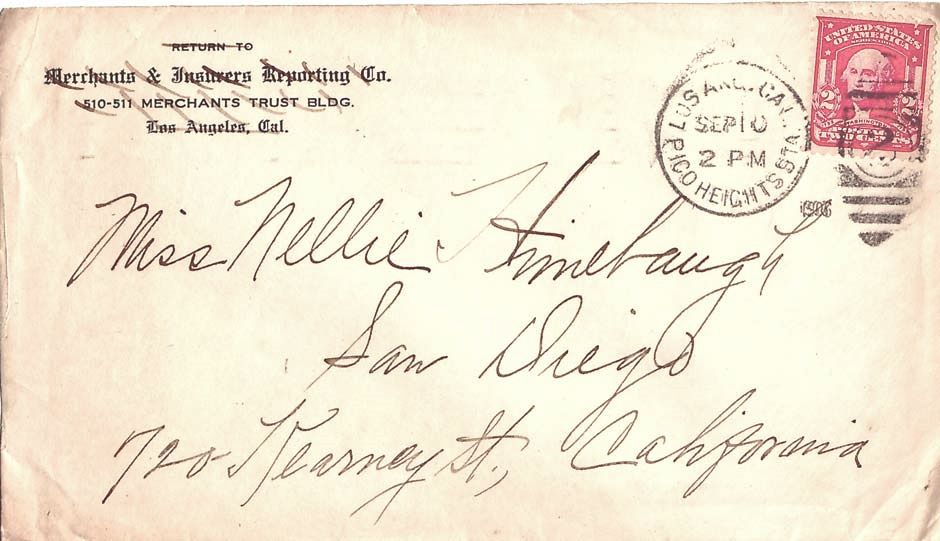 RETURN TO
Merchants & Insurers Reporting Co.
510-511 MERCHANTS TRUST BLDG.
Los Angeles, Cal.
UNITED STATES
OF AMERICA
2 2
TWO CENTS
LOS ANG. CAL.
SEP 10
2 PM
PICO HEIGHTS STA.
1906
Miss Nellie Himebaugh
San Diego
720 Kearney St., California